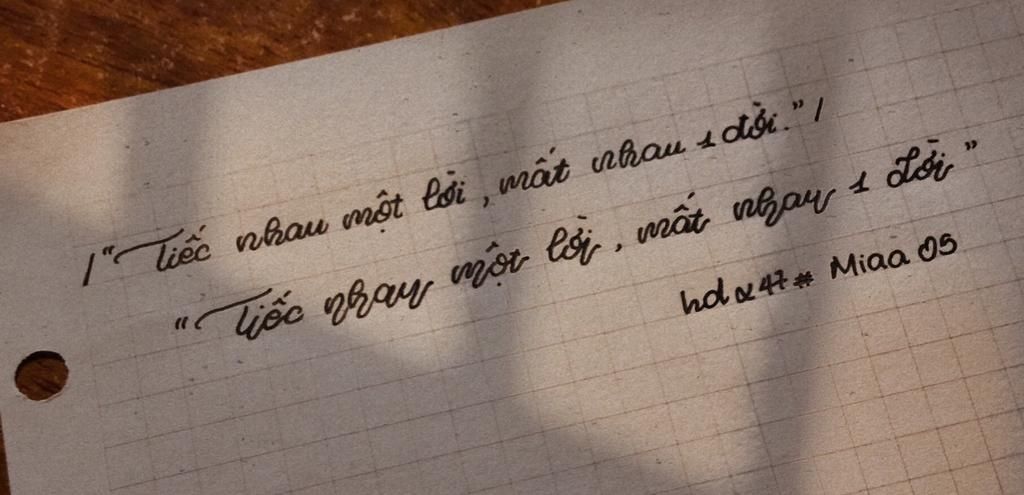 / "Tiếc nhau một lời, mất nhau 1 đời." /
"Tiếc nhau một lời, mất nhau 1 đời"
hdα47# Miaa 05